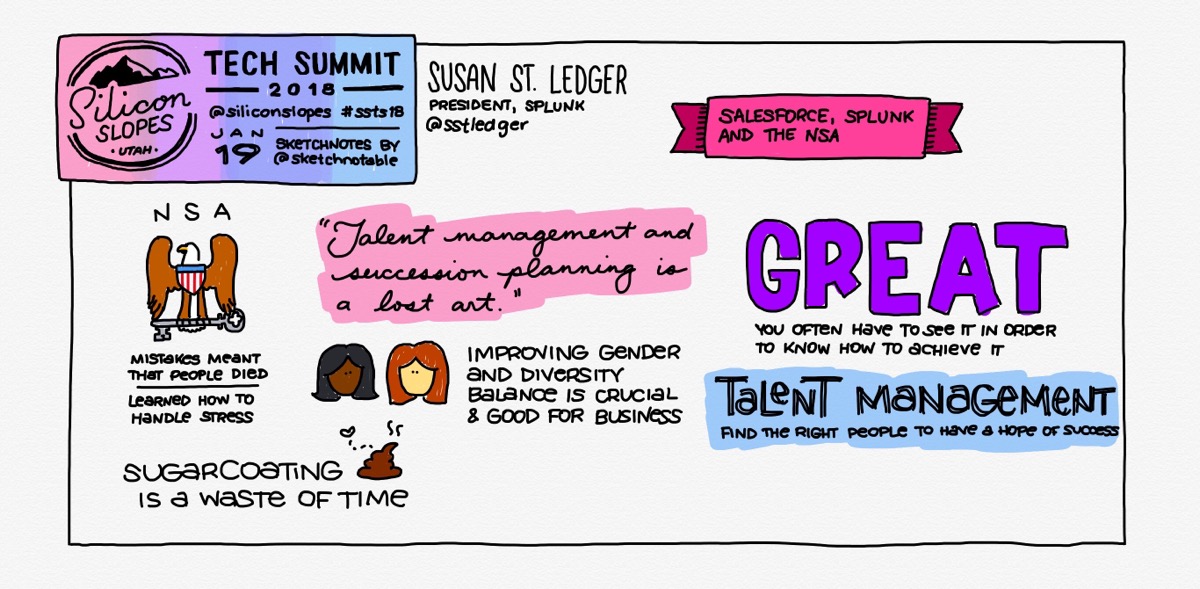 Silicon
SLOPES
• UTAH •
TECH SUMMIT
2018
@siliconslopes #ssts18
JAN
19
SKETCHNOTES BY
@sketchnotable
SUSAN ST. LEDGER
PRESIDENT, SPLUNK
@sstledger
SALESFORCE, SPLUNK
AND THE NSA
NSA
MISTAKES MEANT
THAT PEOPLE DIED
LEARNED HOW TO
HANDLE STRESS
"Talent management and
succession planning is
a lost art."
IMPROVING GENDER
AND DIVERSITY
BALANCE IS CRUCIAL
& GOOD FOR BUSINESS
SUGARCOATING
IS A WASTE OF TIME
GREAT
YOU OFTEN HAVE TO SEE IT IN ORDER
TO KNOW HOW TO ACHIEVE IT
TALENT MANAGEMENT
FIND THE RIGHT PEOPLE TO HAVE A HOPE OF SUCCESS